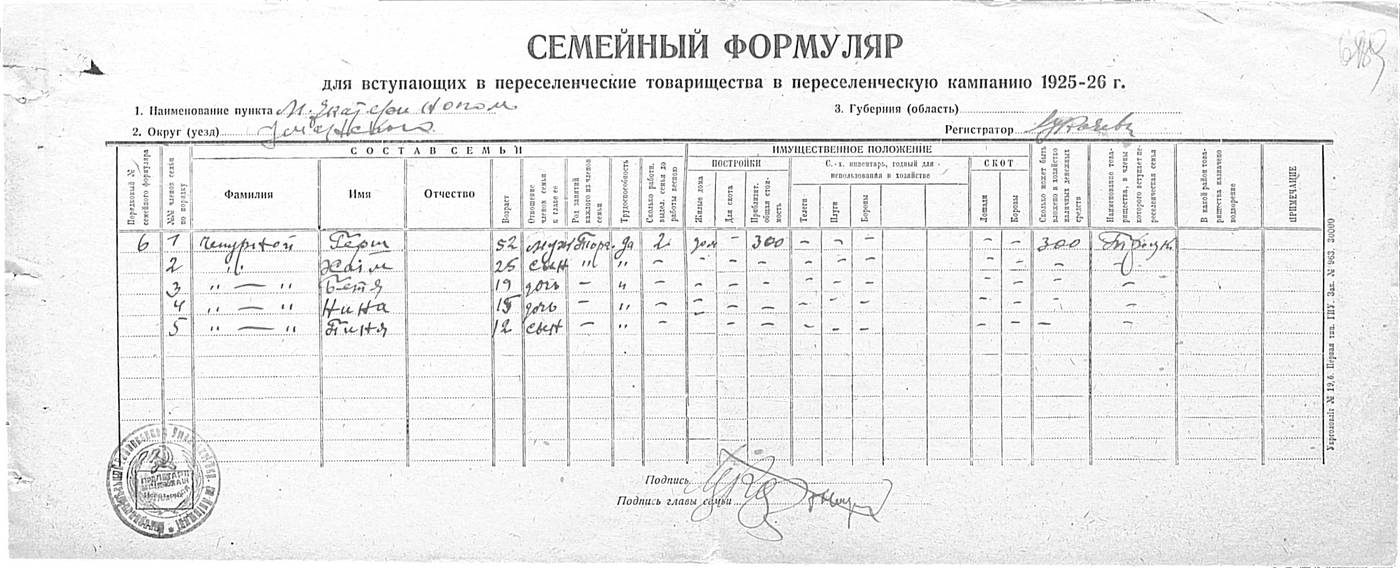 СЕМЕЙНЫЙ ФОРМУЛЯР
для вступающих в переселенческие товарищества в переселенческую кампанию 1925-26 г.
1. Наименование пункта м. Екатеринополь
3. Губерния (область)
2. Округ (уезд) Уманского
Регистратор
СОСТАВ СЕМЬИ
ИМУЩЕСТВЕННОЕ ПОЛОЖЕНИЕ
ПОСТРОЙКИ
С.-х. инвентарь, годный для использования в хозяйстве
СКОТ
Порядковый № семейного формуляра
№№ членов семьи по порядку
Фамилия
Имя
Отчество
Возраст
Отношение членов семьи к главе ее
Род занятий каждого из членов семьи
Трудоспособность
Сколько работн. выдел. семья до работы весною
Жилые дома
Для скота
Приблизит. общая стоимость
Телеги
Плуги
Бороны
Лошади
Коровы
Сколько может быть вложено в хозяйство наличных денежных средств
Наименование товарищества, в члены которого вступает переселенческая семья
В какой район товарищества назначено водворение
ПРИМЕЧАНИЕ
6 1 Герш 52 муж Торг. да 2 дом – 300 – – – – – 300
2 " Хаим 25 сын " " – – – – – – – – – – –
3 " — " Бетя 19 дочь – " – – – – – – – – – – –
4 " — " Нина 15 дочь – " – – – – – – – – – – –
5 " — " Пиня 12 сын – " – – – – – – – – – –
Подпись
Подпись главы семьи
Укрголовліт № 19,6. Первая тип. ГИУ. Зак. № 963. 30000